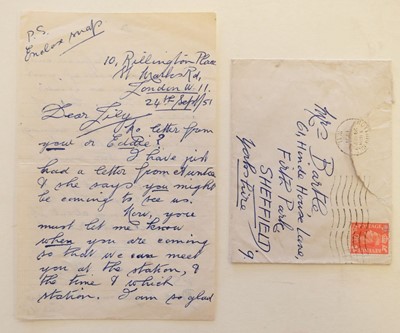 P.S.
Enclose map
10, Rillington Place
St Marks Rd,
London W.11.
24th/Sept/51
Dear Lily,
No letter from
you or Edith?
I have just
had a letter from Auntie
& she says you might
be coming to see us.
Now, you
must let me know
when you are coming
so that we can meet
you at the station, &
the time & which
station. I am so glad
Mrs Bartle
61, Hinde House Lane,
Firth Park,
SHEFFIELD, 9,
Yorkshire,